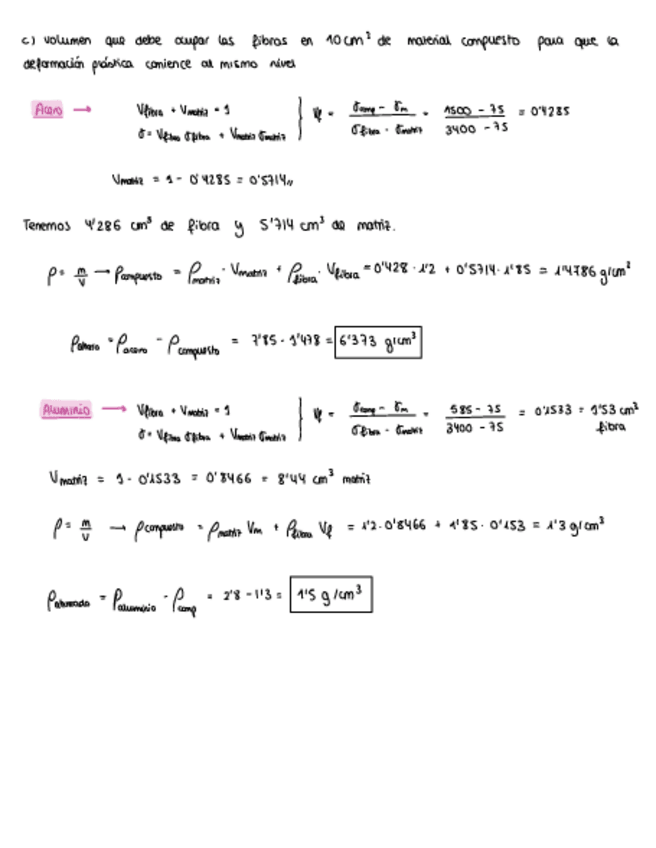 c) volumen que debe ocupar las fibras en 10 cm³ de material compuesto para que la
deformación plástica comience al mismo nivel
Acero → Vfibra + Vmatriz = 1
σ = Vfibra σfibra + Vmatriz σmatriz } Vf = (σcomp - σm)/(σfibra - σmatriz) = (1500 - 75)/(3400 - 75) = 0'4285
Vmatriz = 1 - 0'4285 = 0'5714,,
Tenemos 4'286 cm³ de fibra y 5'714 cm³ de matriz.
ρ = m/v → ρcompuesto = ρmatriz · Vmatriz + ρfibra · Vfibra = 0'428 · 1'2 + 0'5714 · 1'85 = 1'4786 g/cm³
ρahorro = ρacero - ρcompuesto = 7'85 - 1'478 = 6'373 g/cm³
Aluminio → Vfibra + Vmatriz = 1
σ = Vfibra σfibra + Vmatriz σmatriz } Vf = (σcomp - σm)/(σfibra - σmatriz) = (585 - 75)/(3400 - 75) = 0'1533 = 1'53 cm³ fibra
Vmatriz = 1 - 0'1533 = 0'8466 = 8'44 cm³ matriz
ρ = m/v → ρcompuesto = ρmatriz Vm + ρfibra Vf = 1'2 · 0'8466 + 1'85 · 0'153 = 1'3 g/cm³
ρahorrado = ρaluminio - ρcomp = 2'8 - 1'3 = 1'5 g/cm³